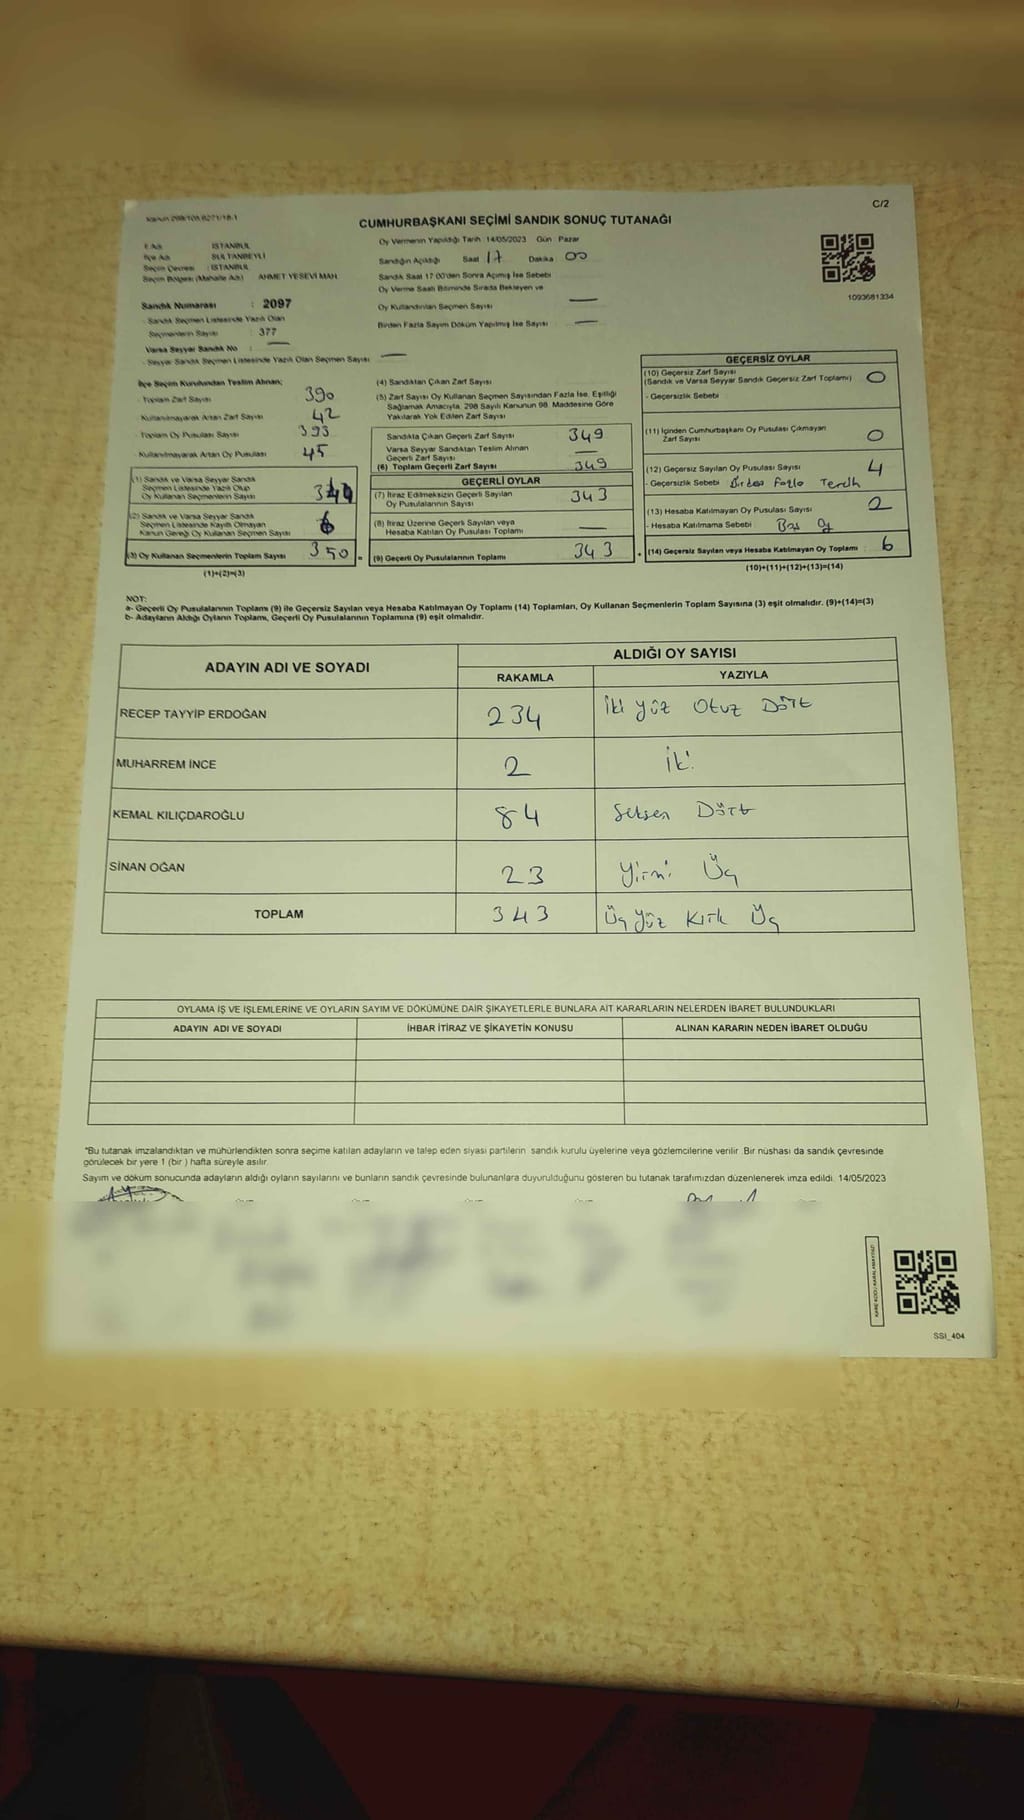 C/2
CUMHURBAŞKANI SEÇİMİ SANDIK SONUÇ TUTANAĞI
İl Adı İSTANBUL
İlçe Adı SULTANBEYLİ
Seçim Çevresi : İSTANBUL
Seçim Bölgesi (Mahalle Adı) AHMET YESEVİ MAH.
Sandık Numarası : 2097
- Sandık Seçmen Listesinde Yazılı Olan
Seçmenlerin Sayısı : 377
Varsa Seyyar Sandık No : —
- Seyyar Sandık Seçmen Listesinde Yazılı Olan Seçmen Sayısı —
Oy Vermenin Yapıldığı Tarih 14/05/2023 Gün Pazar
Sandığın Açıldığı Saat 17 Dakika 00
Sandık Saat 17:00'den Sonra Açılmış İse Sebebi
Oy Verme Saati Bitiminde Sırada Bekleyen ve
Oy Kullandırılan Seçmen Sayısı —
Birden Fazla Sayım Döküm Yapılmış İse Sayısı —
1093681334
İlçe Seçim Kurulundan Teslim Alınan;
- Toplam Zarf Sayısı 390
- Kullanılmayarak Artan Zarf Sayısı 42
- Toplam Oy Pusulası Sayısı 393
- Kullanılmayarak Artan Oy Pusulası 45
(1) Sandık ve Varsa Seyyar Sandık
Seçmen Listesinde Yazılı Olup
Oy Kullanan Seçmenlerin Sayısı
(2) Sandık ve Varsa Seyyar Sandık
Seçmen Listesinde Kayıtlı Olmayan
Kanun Gereği Oy Kullanan Seçmen Sayısı
(3) Oy Kullanan Seçmenlerin Toplam Sayısı 350 =
(1)+(2)=(3)
(4) Sandıktan Çıkan Zarf Sayısı
(5) Zarf Sayısı Oy Kullanan Seçmen Sayısından Fazla İse, Eşitliği
Sağlamak Amacıyla, 298 Sayılı Kanunun 98. Maddesine Göre
Yakılarak Yok Edilen Zarf Sayısı
Sandıkta Çıkan Geçerli Zarf Sayısı 349
Varsa Seyyar Sandıktan Teslim Alınan
Geçerli Zarf Sayısı —
(6) Toplam Geçerli Zarf Sayısı 349
GEÇERLİ OYLAR
(7) İtiraz Edilmeksizin Geçerli Sayılan
Oy Pusulalarının Sayısı 343
(8) İtiraz Üzerine Geçerli Sayılan veya
Hesaba Katılan Oy Pusulası Toplamı —
(9) Geçerli Oy Pusulalarının Toplamı 343 +
GEÇERSİZ OYLAR
(10) Geçersiz Zarf Sayısı
(Sandık ve Varsa Seyyar Sandık Geçersiz Zarf Toplamı) 0
- Geçersizlik Sebebi
(11) İçinden Cumhurbaşkanı Oy Pusulası Çıkmayan
Zarf Sayısı 0
(12) Geçersiz Sayılan Oy Pusulası Sayısı 4
- Geçersizlik Sebebi Birden Fazla Tercih
(13) Hesaba Katılmayan Oy Pusulası Sayısı 2
- Hesaba Katılmama Sebebi Boş Oy
(14) Geçersiz Sayılan veya Hesaba Katılmayan Oy Toplamı 6
(10)+(11)+(12)+(13)=(14)
NOT:
a- Geçerli Oy Pusulalarının Toplamı (9) ile Geçersiz Sayılan veya Hesaba Katılmayan Oy Toplamı (14) Toplamları, Oy Kullanan Seçmenlerin Toplam Sayısına (3) eşit olmalıdır. (9)+(14)=(3)
b- Adayların Aldığı Oyların Toplamı, Geçerli Oy Pusulalarının Toplamına (9) eşit olmalıdır.
ADAYIN ADI VE SOYADI ALDIĞI OY SAYISI
RAKAMLA YAZIYLA
RECEP TAYYİP ERDOĞAN 234 İki yüz Otuz Dört
MUHARREM İNCE 2 İki
KEMAL KILIÇDAROĞLU 84 Seksen Dört
SİNAN OĞAN 23 Yirmi Üç
TOPLAM 343 Üç Yüz Kırk Üç
OYLAMA İŞ VE İŞLEMLERİNE VE OYLARIN SAYIM VE DÖKÜMÜNE DAİR ŞİKAYETLERLE BUNLARA AİT KARARLARIN NELERDEN İBARET BULUNDUKLARI
ADAYIN ADI VE SOYADI İHBAR İTİRAZ VE ŞİKAYETİN KONUSU ALINAN KARARIN NEDEN İBARET OLDUĞU
*Bu tutanak imzalandıktan ve mühürlendikten sonra seçime katılan adayların ve talep eden siyasi partilerin sandık kurulu üyelerine veya gözlemcilerine verilir. Bir nüshası da sandık çevresinde
görülecek bir yere 1 (bir ) hafta süreyle asılır.
Sayım ve döküm sonucunda adayların aldığı oyların sayılarını ve bunların sandık çevresinde bulunanlara duyurulduğunu gösteren bu tutanak tarafımızdan düzenlenerek imza edildi. 14/05/2023
SSI_404